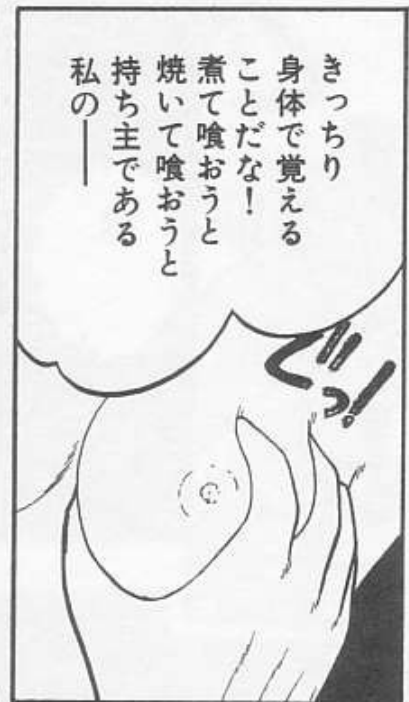 きっちり
身体で覚える
ことだな！
煮て喰おうと
焼いて喰おうと
持ち主である
私の――
ぐっ！